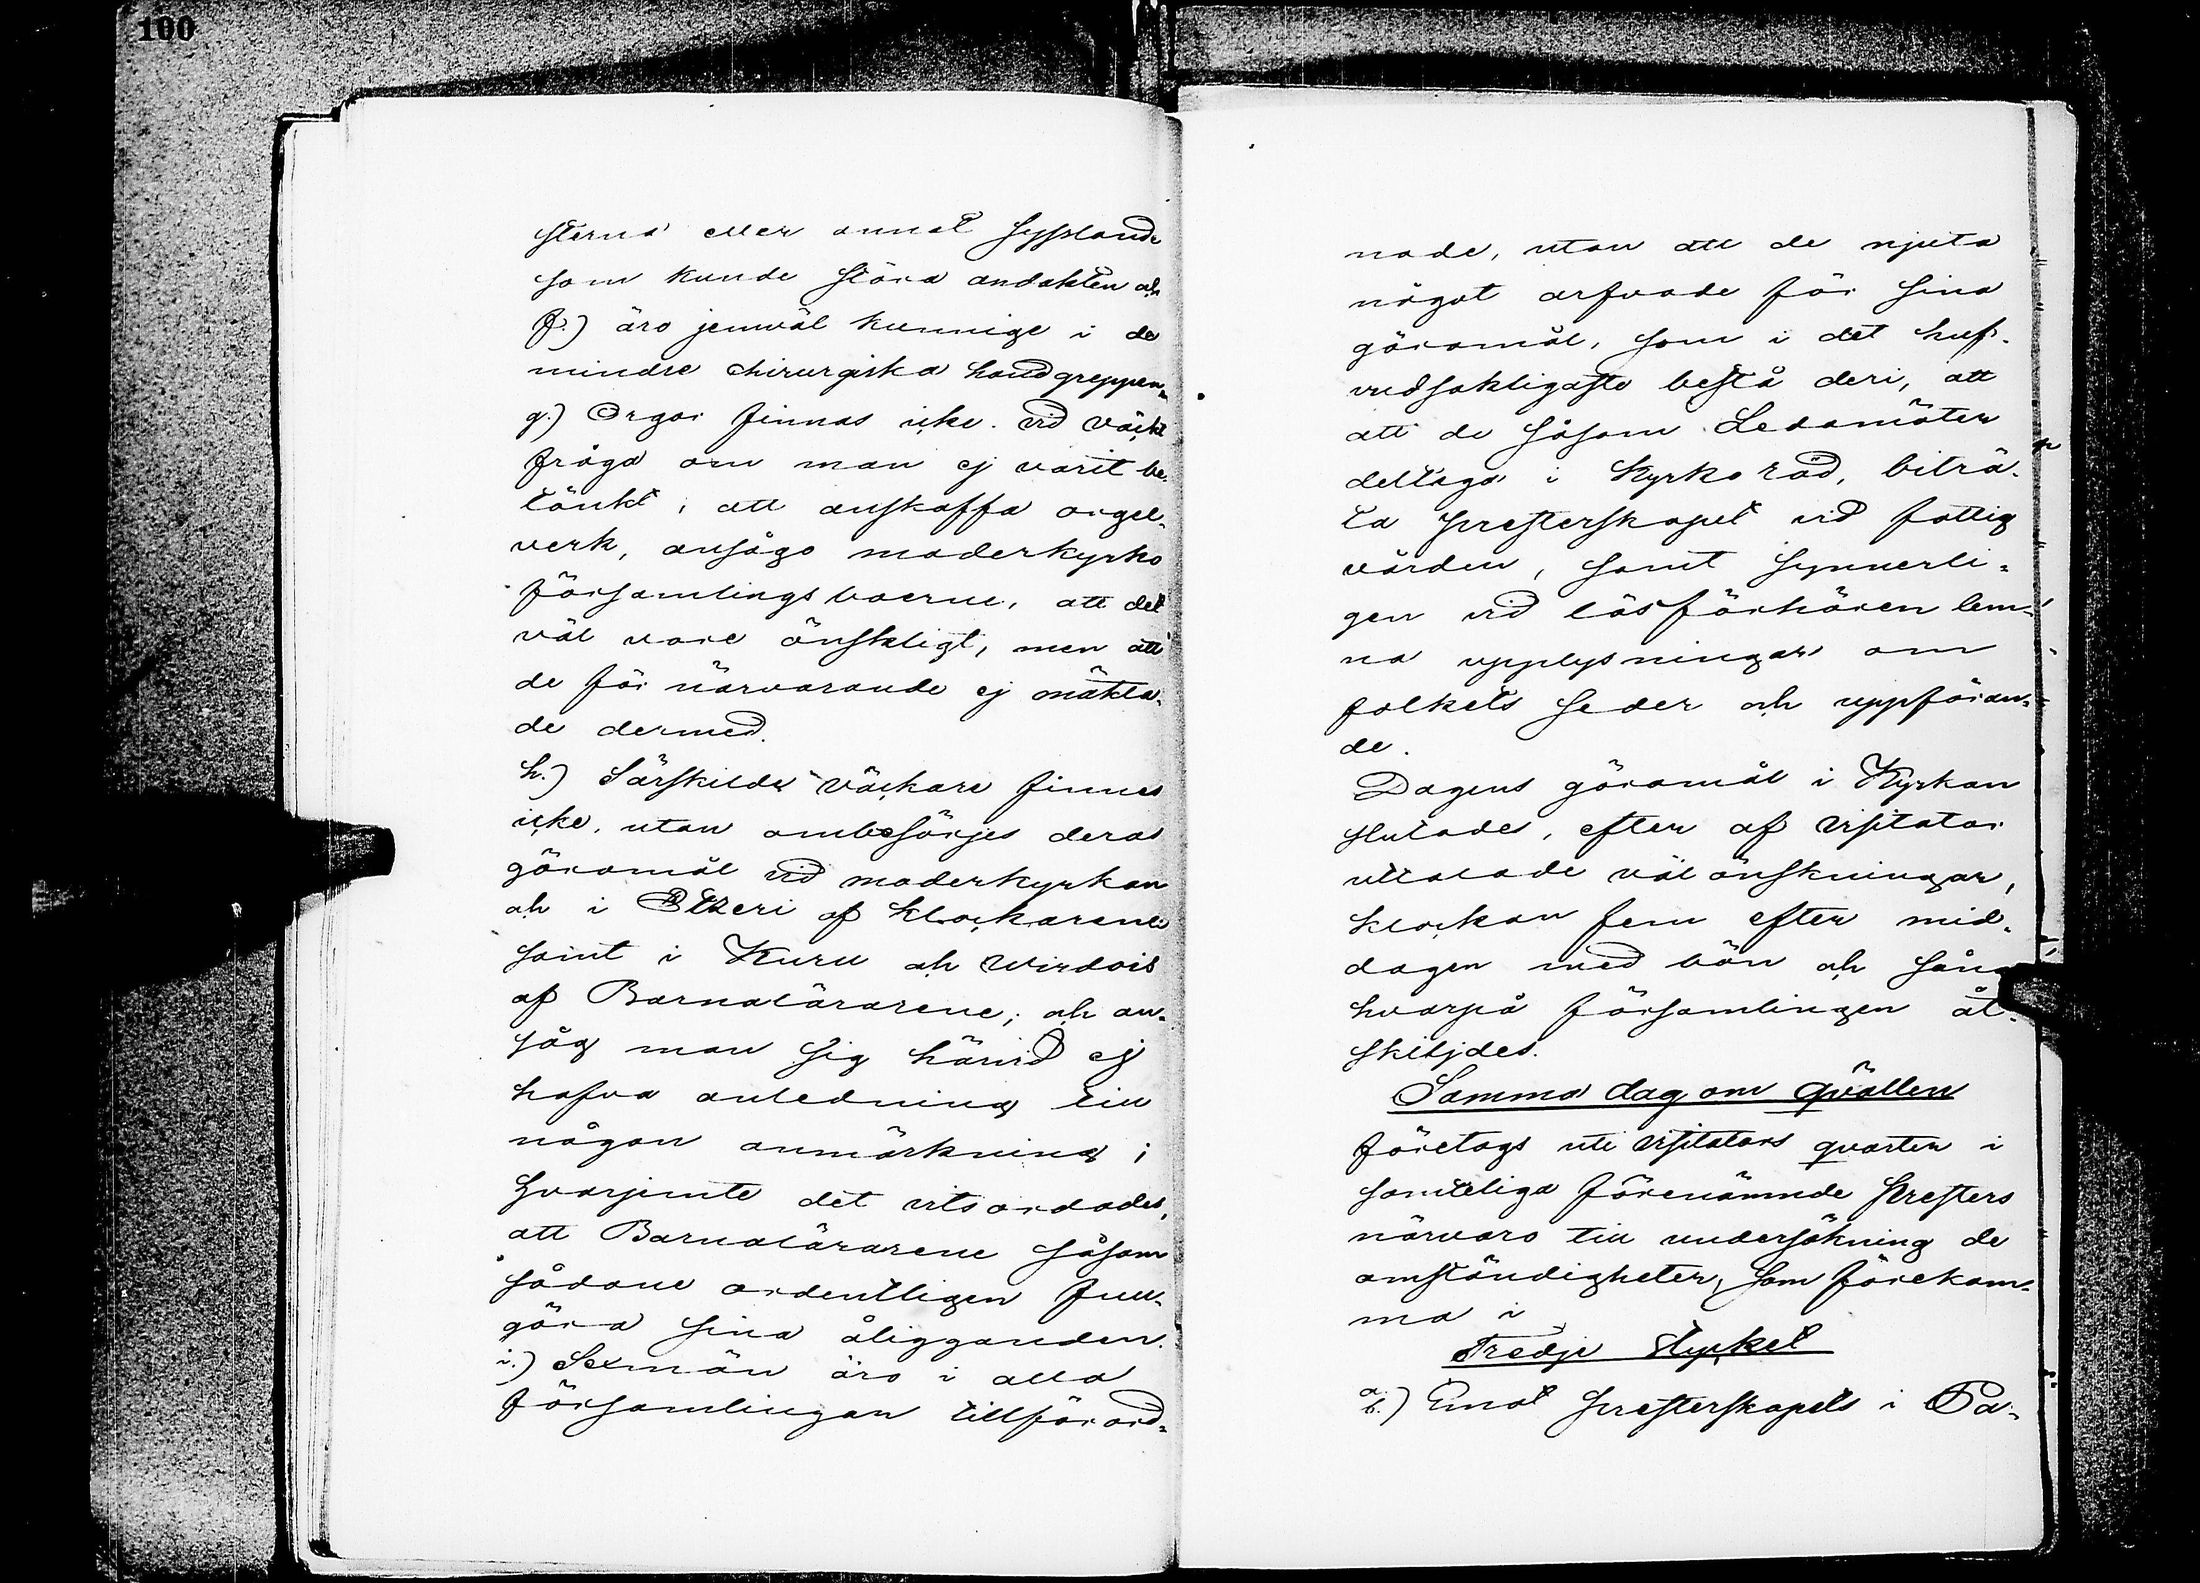 100
sterna eller annat sysslande
som kunde störa andakten och
f.) äro jemväl kunnige i de
mindre chirurgiska handgreppen.
g.) Orgor finnas icke. Vid väckt
fråga om man ej varit be-
tänkt, att anskaffa orgel-
verk, ansågo moderkyrko
församlingsboerne, att det
väl vore önskligt, men att
de för närvarande ej mäkta-
de dermed.
h.) Särskilda väckare finnes
icke, utan ombesörjes deras
göromål vid moderkyrkan
och i Etzeri af klockarene
samt i Kuru och Wirdois
af Barnalärarene; och an-
såg man sig härvid ej
hafva anledning till
någon anmärkning;
hvarjemte det vitsordades,
att Barnalärarene såsom
sådane ordentligen full-
göra sina åligganden.
i.) Sexmän äro i alla
församlingar tillförord-
nade, utan att de njuta
något arfvode för sina
göromål, som i det huf-
vudsakligaste bestå deri, att
att de såsom Ledamöter
deltaga i Kyrko råd, biträ-
da presterskapet vid fattig
vården, samt synnerli-
gen vid läsförhören lem-
na upplysningar om
folkets seder och uppföran-
de.
Dagens göromål i Kyrkan
slutades, efter af Visitator
uttalade välönskningar,
klockan fem efter mid-
dagen med bön och sång
hvarpå församlingen åt-
skiljdes.
Samma dag om qvällen
företogs uti Visitators qvarter i
samteliga förenämnde Presters
närvaro till undersökning de
omständigheter, som förekom-
ma i
Tredje Stycket
a.) b.) Emot presterskapets i